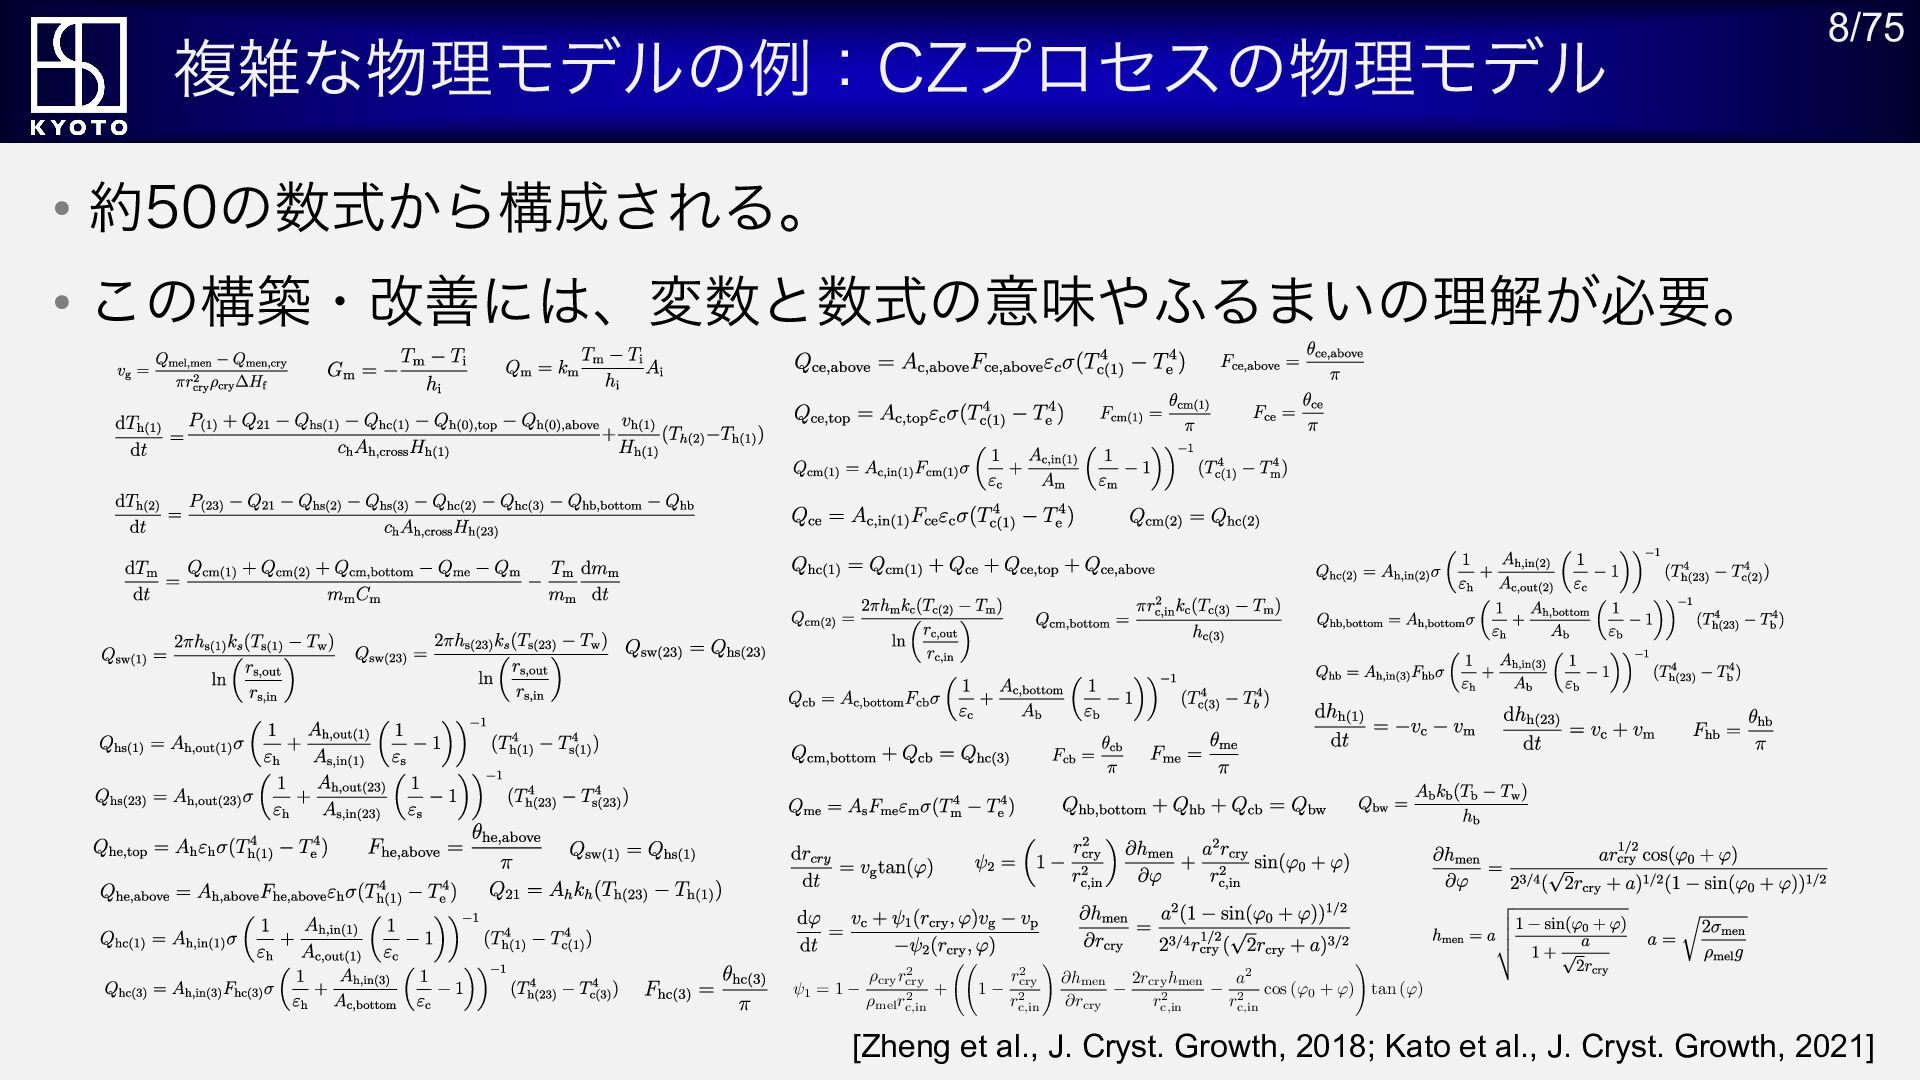 8/75
KYOTO
複雑な物理モデルの例：CZプロセスの物理モデル
• 約50の数式から構成される。
• この構築・改善には、変数と数式の意味やふるまいの理解が必要。
v_g = \frac{Q_{mel,men} − Q_{men,cry}}{πr_{cry}^2 ρ_{cry}ΔH_f}   G_m = −\frac{T_m − T_i}{h_i}   Q_m = k_m\frac{T_m − T_i}{h_i}A_i
\frac{dT_{h(1)}}{dt} = \frac{P_{(1)} + Q_{21} − Q_{hs(1)} − Q_{hc(1)} − Q_{h(0),top} − Q_{h(0),above}}{c_h A_{h,cross}H_{h(1)}} + \frac{v_{h(1)}}{H_{h(1)}}(T_{h(2)} − T_{h(1)})
\frac{dT_{h(2)}}{dt} = \frac{P_{(23)} − Q_{21} − Q_{hs(2)} − Q_{hs(3)} − Q_{hc(2)} − Q_{hc(3)} − Q_{hb,bottom} − Q_{hb}}{c_h A_{h,cross}H_{h(23)}}
\frac{dT_m}{dt} = \frac{Q_{cm(1)} + Q_{cm(2)} + Q_{cm,bottom} − Q_{me} − Q_m}{m_m C_m} − \frac{T_m}{m_m}\frac{dm_m}{dt}
Q_{sw(1)} = \frac{2πh_{s(1)}k_s(T_{s(1)} − T_w)}{\ln(\frac{r_{s,out}}{r_{s,in}})}   Q_{sw(23)} = \frac{2πh_{s(23)}k_s(T_{s(23)} − T_w)}{\ln(\frac{r_{s,out}}{r_{s,in}})}   Q_{sw(23)} = Q_{hs(23)}
Q_{hs(1)} = A_{h,out(1)}σ(\frac{1}{ε_h} + \frac{A_{h,out(1)}}{A_{s,in(1)}}(\frac{1}{ε_s} − 1))^{−1}(T_{h(1)}^4 − T_{s(1)}^4)
Q_{hs(23)} = A_{h,out(23)}σ(\frac{1}{ε_h} + \frac{A_{h,out(23)}}{A_{s,in(23)}}(\frac{1}{ε_s} − 1))^{−1}(T_{h(23)}^4 − T_{s(23)}^4)
Q_{he,top} = A_h ε_h σ(T_{h(1)}^4 − T_e^4)   F_{he,above} = \frac{θ_{he,above}}{π}   Q_{sw(1)} = Q_{hs(1)}
Q_{he,above} = A_{h,above}F_{he,above}ε_h σ(T_{h(1)}^4 − T_e^4)   Q_{21} = A_h k_h(T_{h(23)} − T_{h(1)})
Q_{hc(1)} = A_{h,in(1)}σ(\frac{1}{ε_h} + \frac{A_{h,in(1)}}{A_{c,out(1)}}(\frac{1}{ε_c} − 1))^{−1}(T_{h(1)}^4 − T_{c(1)}^4)
Q_{hc(3)} = A_{h,in(3)}F_{hc(3)}σ(\frac{1}{ε_h} + \frac{A_{h,in(3)}}{A_{c,bottom}}(\frac{1}{ε_c} − 1))^{−1}(T_{h(23)}^4 − T_{c(3)}^4)   F_{hc(3)} = \frac{θ_{hc(3)}}{π}
Q_{ce,above} = A_{c,above}F_{ce,above}ε_c σ(T_{c(1)}^4 − T_e^4)   F_{ce,above} = \frac{θ_{ce,above}}{π}
Q_{ce,top} = A_{c,top}ε_c σ(T_{c(1)}^4 − T_e^4)   F_{cm(1)} = \frac{θ_{cm(1)}}{π}   F_{ce} = \frac{θ_{ce}}{π}
Q_{cm(1)} = A_{c,in(1)}F_{cm(1)}σ(\frac{1}{ε_c} + \frac{A_{c,in(1)}}{A_m}(\frac{1}{ε_m} − 1))^{−1}(T_{c(1)}^4 − T_m^4)
Q_{ce} = A_{c,in(1)}F_{ce}ε_c σ(T_{c(1)}^4 − T_e^4)   Q_{cm(2)} = Q_{hc(2)}
Q_{hc(1)} = Q_{cm(1)} + Q_{ce} + Q_{ce,top} + Q_{ce,above}
Q_{cm(2)} = \frac{2πh_m k_c(T_{c(2)} − T_m)}{\ln(\frac{r_{c,out}}{r_{c,in}})}   Q_{cm,bottom} = \frac{πr_{c,in}^2 k_c(T_{c(3)} − T_m)}{h_{c(3)}}
Q_{cb} = A_{c,bottom}F_{cb}σ(\frac{1}{ε_c} + \frac{A_{c,bottom}}{A_b}(\frac{1}{ε_b} − 1))^{−1}(T_{c(3)}^4 − T_b^4)
Q_{cm,bottom} + Q_{cb} = Q_{hc(3)}   F_{cb} = \frac{θ_{cb}}{π}   F_{me} = \frac{θ_{me}}{π}
Q_{hc(2)} = A_{h,in(2)}σ(\frac{1}{ε_h} + \frac{A_{h,in(2)}}{A_{c,out(2)}}(\frac{1}{ε_c} − 1))^{−1}(T_{h(23)}^4 − T_{c(2)}^4)
Q_{hb,bottom} = A_{h,bottom}σ(\frac{1}{ε_h} + \frac{A_{h,bottom}}{A_b}(\frac{1}{ε_b} − 1))^{−1}(T_{h(23)}^4 − T_b^4)
Q_{hb} = A_{h,in(3)}F_{hb}σ(\frac{1}{ε_h} + \frac{A_{h,in(3)}}{A_b}(\frac{1}{ε_b} − 1))^{−1}(T_{h(23)}^4 − T_b^4)
\frac{dh_{h(1)}}{dt} = −v_c − v_m   \frac{dh_{h(23)}}{dt} = v_c + v_m   F_{hb} = \frac{θ_{hb}}{π}
Q_{me} = A_s F_{me}ε_m σ(T_m^4 − T_e^4)   Q_{hb,bottom} + Q_{hb} + Q_{cb} = Q_{bw}   Q_{bw} = \frac{A_b k_b(T_b − T_w)}{h_b}
\frac{dr_{cry}}{dt} = v_g tan(φ)   ψ_2 = (1 − \frac{r_{cry}^2}{r_{c,in}^2})\frac{∂h_{men}}{∂φ} + \frac{a^2 r_{cry}}{r_{c,in}^2} sin(φ_0 + φ)   \frac{∂h_{men}}{∂φ} = \frac{ar_{cry}^{1/2} cos(φ_0 + φ)}{2^{3/4}(\sqrt{2}r_{cry} + a)^{1/2}(1 − sin(φ_0 + φ))^{1/2}}
\frac{dφ}{dt} = \frac{v_c + ψ_1(r_{cry}, φ)v_g − v_p}{−ψ_2(r_{cry}, φ)}   \frac{∂h_{men}}{∂r_{cry}} = \frac{a^2(1 − sin(φ_0 + φ))^{1/2}}{2^{3/4}r_{cry}^{1/2}(\sqrt{2}r_{cry} + a)^{3/2}}   h_{men} = a\sqrt{\frac{1 − sin(φ_0 + φ)}{1 + \frac{a}{\sqrt{2}r_{cry}}}}   a = \sqrt{\frac{2σ_{men}}{ρ_{mel}g}}
ψ_1 = 1 − \frac{ρ_{cry}r_{cry}^2}{ρ_{mel}r_{c,in}^2} + ((1 − \frac{r_{cry}^2}{r_{c,in}^2})\frac{∂h_{men}}{∂r_{cry}} − \frac{2r_{cry}h_{men}}{r_{c,in}^2} − \frac{a^2}{r_{c,in}^2} cos (φ_0 + φ)) tan (φ)
[Zheng et al., J. Cryst. Growth, 2018; Kato et al., J. Cryst. Growth, 2021]